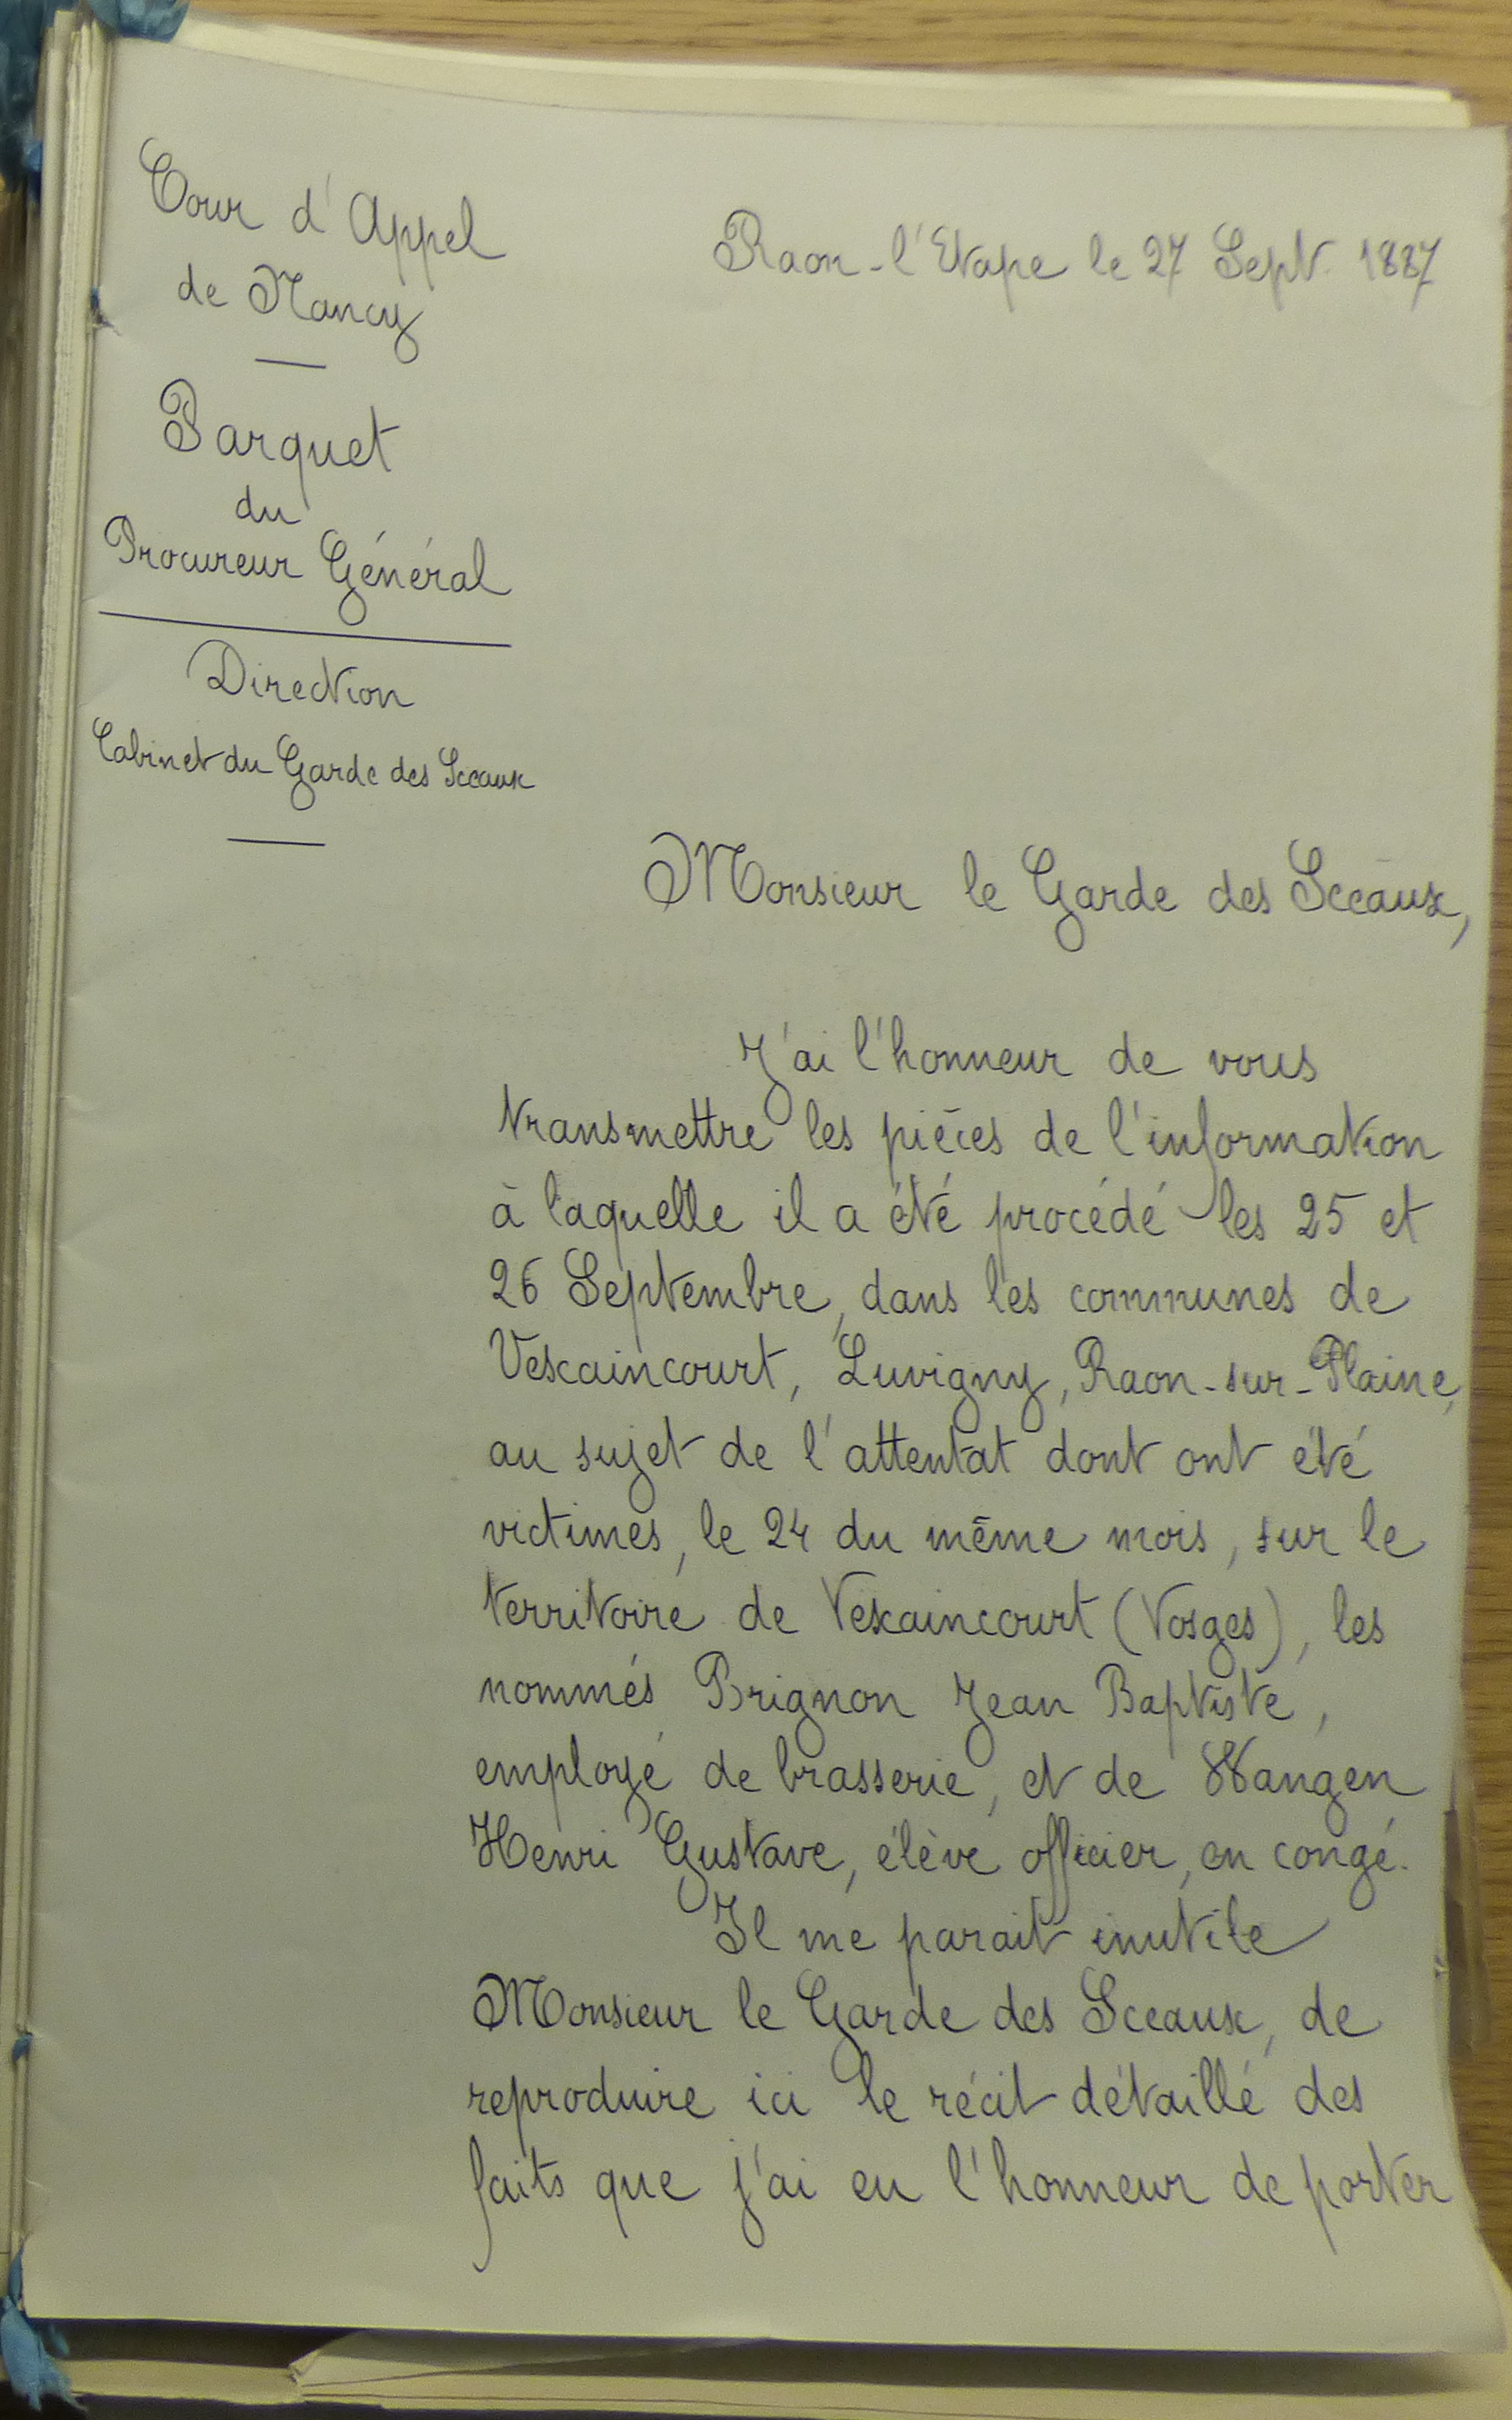 Cour d'Appel
de Nancy
Parquet
du
Procureur Général
Direction
Cabinet du Garde des Sceaux
Raon-l'Etape le 27 Sept. 1887
Monsieur le Garde des Sceaux,
J'ai l'honneur de vous
transmettre les pièces de l'information
à laquelle il a été procédé les 25 et
26 Septembre, dans les communes de
Vexaincourt, Luvigny, Raon-sur-Plaine,
au sujet de l'attentat dont ont été
victimes, le 24 du même mois, sur le
territoire de Vexaincourt (Vosges), les
nommés Brignon Jean Baptiste,
employé de brasserie, et de Wangen
Henri Gustave, élève officier, en congé.
Il me parait inutile
Monsieur le Garde des Sceaux, de
reproduire ici le récit détaillé des
faits que j'ai eu l'honneur de porter